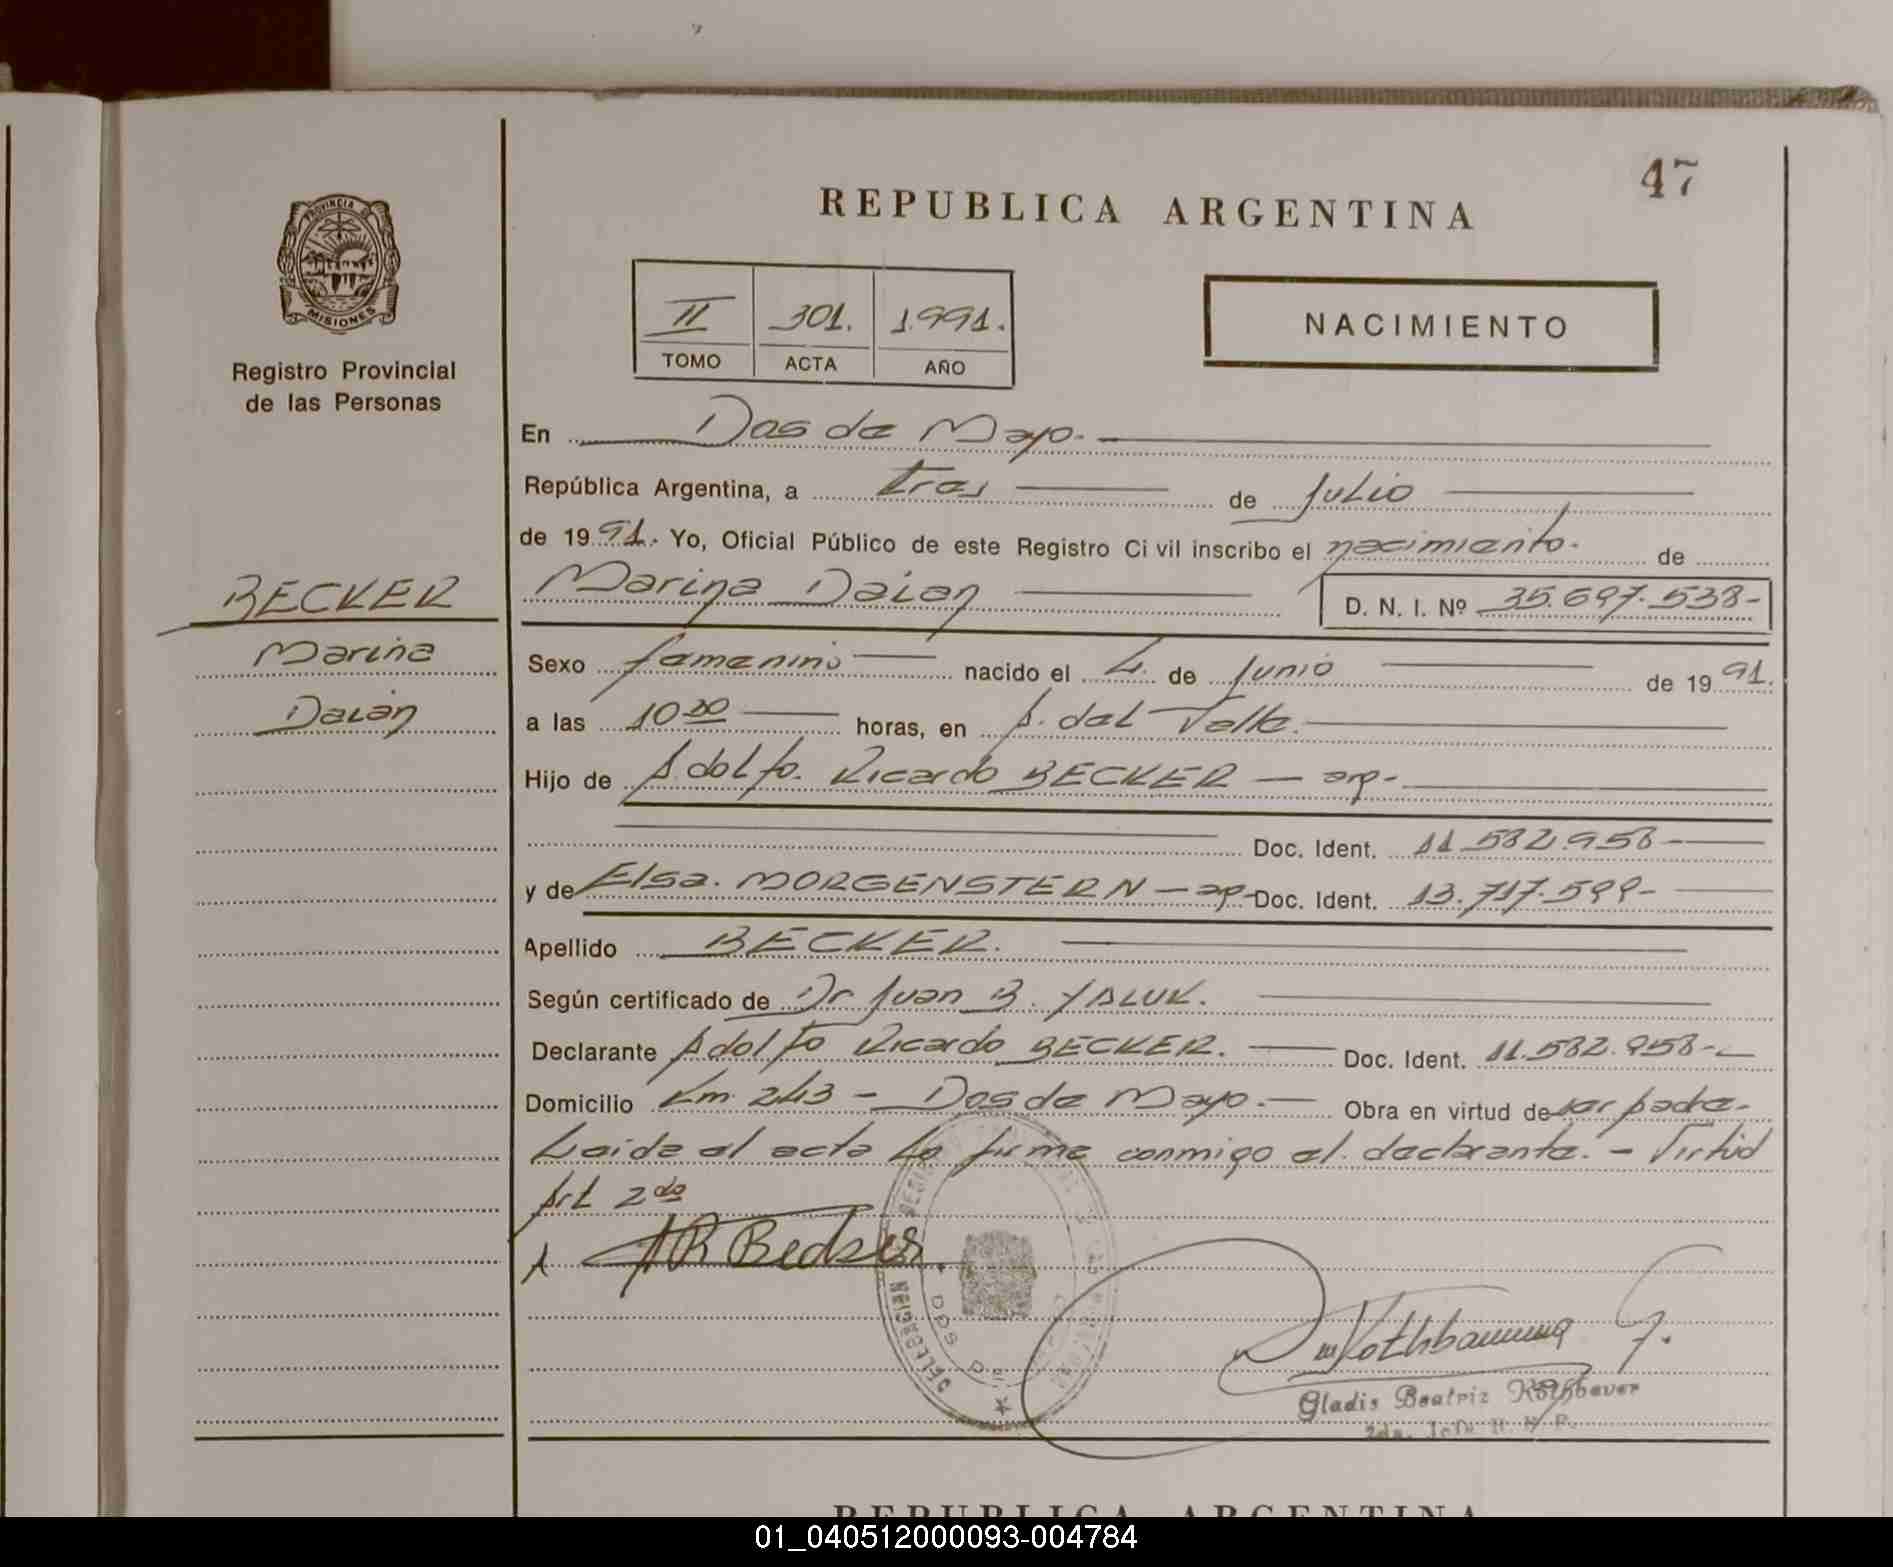 47
REPUBLICA ARGENTINA
PROVINCIA DE
MISIONES
Registro Provincial
de las Personas
II 301. 1.991.
TOMO ACTA AÑO
NACIMIENTO
En Dos de Mayo.
República Argentina, a tres de Julio
de 1991. Yo, Oficial Público de este Registro Civil inscribo el nacimiento. de
BECKER
Marina Daian D. N. I. Nº 35.697.538-
Marina
Daian
Sexo femenino nacido el 4. de Junio de 1991.
a las 10 horas, en A. del Valle.
Hijo de Adolfo. Ricardo BECKER — arg-
Doc. Ident. 11.582.958-
y de Elsa. MORGENSTERN - Doc. Ident. 13.717.599-
Apellido BECKER.
Según certificado de Dr Juan B. YALUK.
Declarante Adolfo Ricardo BECKER. Doc. Ident. 11.582.958-
Domicilio Km 243 - Dos de Mayo. - Obra en virtud de ser padre-
Leida el acta la firma conmigo el declarante. - Virtud
Art 2do
AR Becker
Gladis Beatriz Rothbauer
REPUBLICA ARGENTINA
01_040512000093-004784